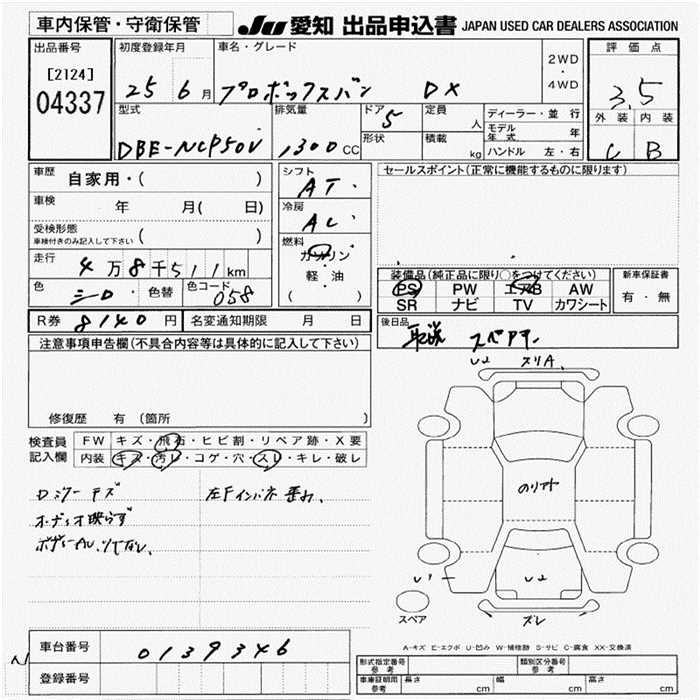 車内保管・守衛保管
JU 愛知 出品申込書 JAPAN USED CAR DEALERS ASSOCIATION
出品番号
[2124]
04337
初度登録年月
25 6 月
車名・グレード
プロボックスバン DX
2WD
・
4WD
評価点
3.5
外装 内装
C B
型式
DBE-NCP50V
排気量
1300 CC
ドア 5
形状
定員 人
積載 kg
ディーラー・並行
モデル年式 年
ハンドル 左・右
車歴 自家用・( )
車検 年 月( 日)
受検形態
車検付きのみ記入して下さい ( )
走行 4万8千511km
色 シロ 色替 色コード 058
シフト AT
冷房 AC
燃料 ガソリン
・
軽・油
( )
R券 8140 円
名変通知期限 月 日
セールスポイント(正常に機能するものに限ります)
装備品(純正品に限り○をつけてください)
PS PW エアB AW
SR ナビ TV カワシート
新車保証書
有・無
後日品
取説 スペアキー
注意事項申告欄(不具合内容等は具体的に記入して下さい)
修復歴 有 (箇所
検査員記入欄
FW キズ・飛石・ヒビ割・リペア跡・X要
内装 キズ・汚レ・コゲ・穴・スレ・キレ・破レ
オーディオ映らず
U2 スリA.
U1
U2
ズレ
スペア
A-キズ E-エクボ U-凹み W-補修跡 S-サビ C-腐食 XX-交換済
車台番号 0139346
登録番号
形式指定番号 参考
類別区分番号 参考
車庫証明用 参考 長さ cm 幅 cm 高さ cm